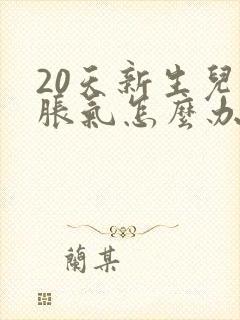 20天新生兒
脹氣怎麼办
蘭某